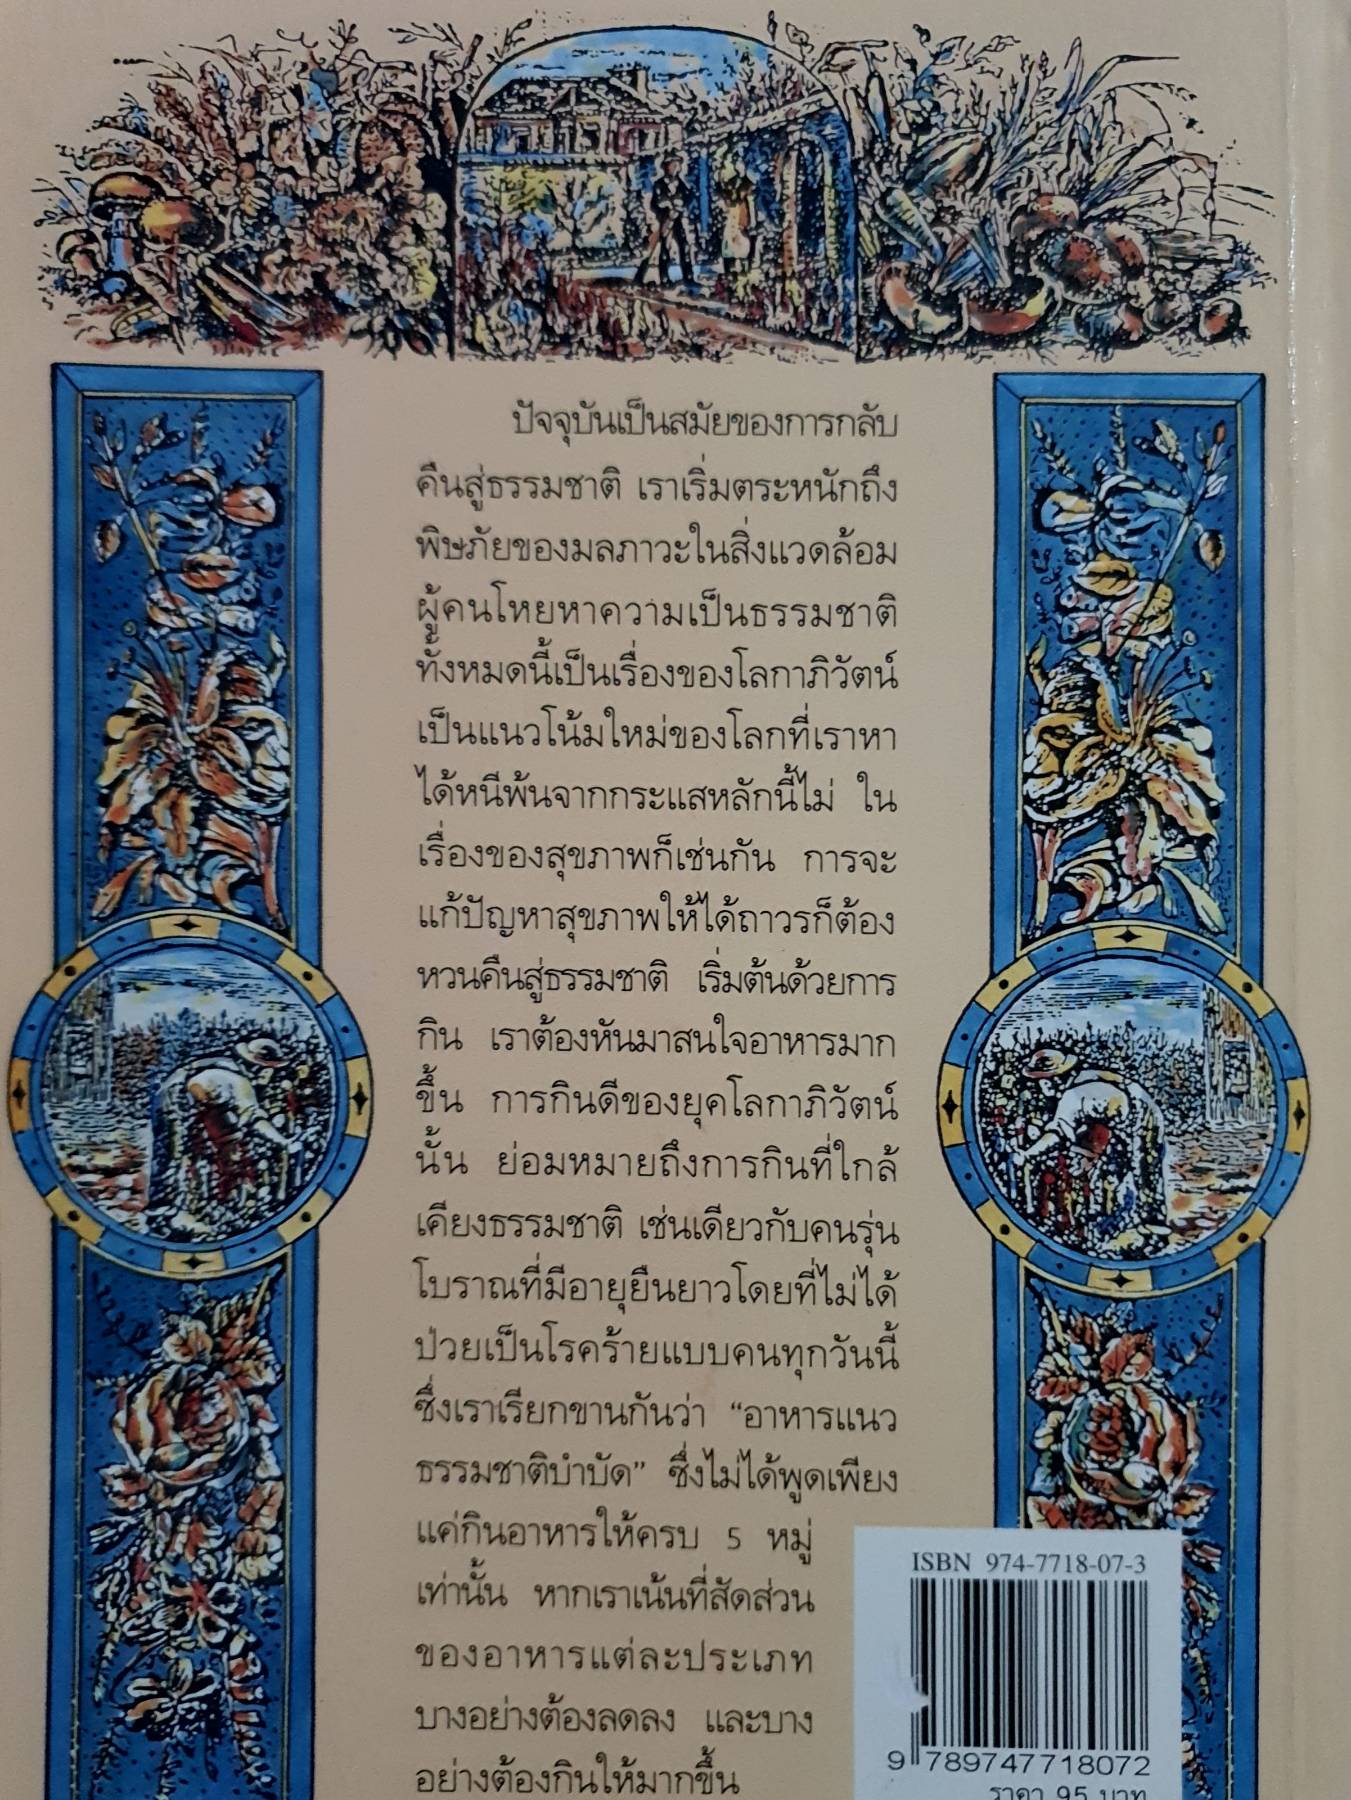 ปัจจุบันเป็นสมัยของการกลับ
คืนสู่ธรรมชาติ เราเริ่มตระหนักถึง
พิษภัยของมลภาวะในสิ่งแวดล้อม
ผู้คนโหยหาความเป็นธรรมชาติ
ทั้งหมดนี้เป็นเรื่องของโลกาภิวัตน์
เป็นแนวโน้มใหม่ของโลกที่เราหา
ได้หนีพ้นจากกระแสหลักนี้ไม่ ใน
เรื่องของสุขภาพก็เช่นกัน การจะ
แก้ปัญหาสุขภาพให้ได้ถาวรก็ต้อง
หวนคืนสู่ธรรมชาติ เริ่มต้นด้วยการ
กิน เราต้องหันมาสนใจอาหารมาก
ขึ้น การกินดีของยุคโลกาภิวัตน์
นั้น ย่อมหมายถึงการกินที่ใกล้
เคียงธรรมชาติ เช่นเดียวกับคนรุ่น
โบราณที่มีอายุยืนยาวโดยที่ไม่ได้
ป่วยเป็นโรคร้ายแบบคนทุกวันนี้
ซึ่งเราเรียกขานกันว่า “อาหารแนว
ธรรมชาติบำบัด” ซึ่งไม่ได้พูดเพียง
แค่กินอาหารให้ครบ 5 หมู่
เท่านั้น หากเราเน้นที่สัดส่วน
ของอาหารแต่ละประเภท
บางอย่างต้องลดลง และบาง
อย่างต้องกินให้มากขึ้น
ISBN 974-7718-07-3
9 789747718072
ราคา 95 บาท